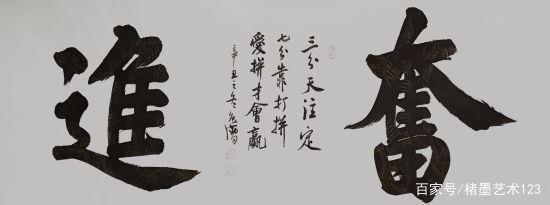 奮進
三分天注定
七分靠打拼
愛拼才會贏
辛丑之冬
百家号/楮墨艺术123